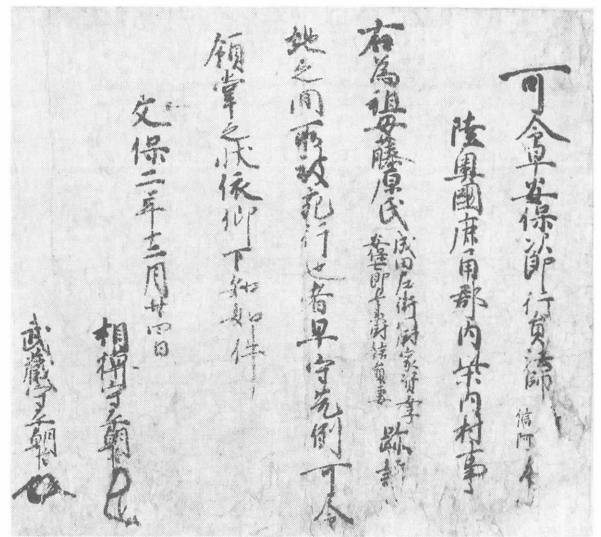 可令早安保次郎行員法師 信阿
陸奥國鹿角郡内柴内村事
右為祖母藤原氏 成田左衛門尉家資女 安保七郎左衛門尉 妻 跡
地之間所被宛行也者早守先例可令
領掌之状依仰下知如件
文保二年十二月廿四日
相模守平朝臣
武蔵守平朝臣